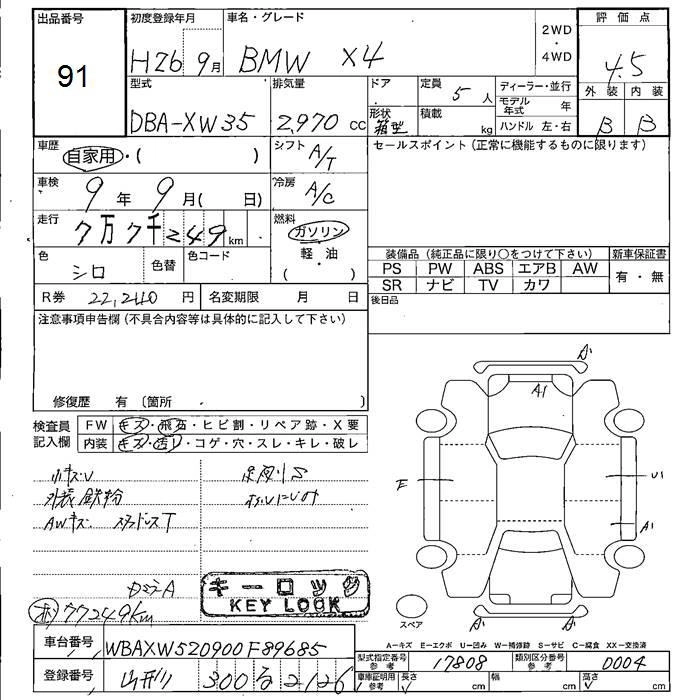 出品番号
91
初度登録年月
H26 9月
車名・グレード
BMW X4
2WD
・
4WD
評価点
4.5
外装 内装
B B
型式
DBA-XW35
排気量
2,970 cc
ドア
形状
箱型
定員
5 人
積載
kg
ディーラー・並行
モデル年式 年
ハンドル 左・右
車歴
自家用・( )
シフト
A/T
セールスポイント (正常に機能するものに限ります)
車検
9年 9月( 日)
冷房
A/C
走行
7万7千249km
燃料
ガソリン
・
軽油
( )
色
シロ
色替
色コード
装備品 (純正品に限り〇をつけて下さい)
新車保証書
PS PW ABS エアB AW
SR ナビ TV カワ
有・無
R券 22,240 円
名変期限 月 日
後日品
注意事項申告欄 (不具合内容等は具体的に記入して下さい)
修復歴 有 〔箇所 〕
検査員
記入欄
FW キズ・飛石・ヒビ割・リペア跡・X要
内装 キズ・汚レ・コゲ・穴・スレ・キレ・破レ
小キズU
外装鉄粉
AWキズ スタッドレスT
77249km
キーロック
KEY LOCK
A' A1 E U1 A1 A' A'
スペア
A-キズ E-エクボ U-凹み W-補修跡 S-サビ C-腐食 XX-交換済
車台番号
WBAXW520900F89685
登録番号
山形 300 る 2126
型式指定番号
参考
17808
類別区分番号
参考
0004
車体証明用
参考
長さ cm
幅 cm
高さ cm